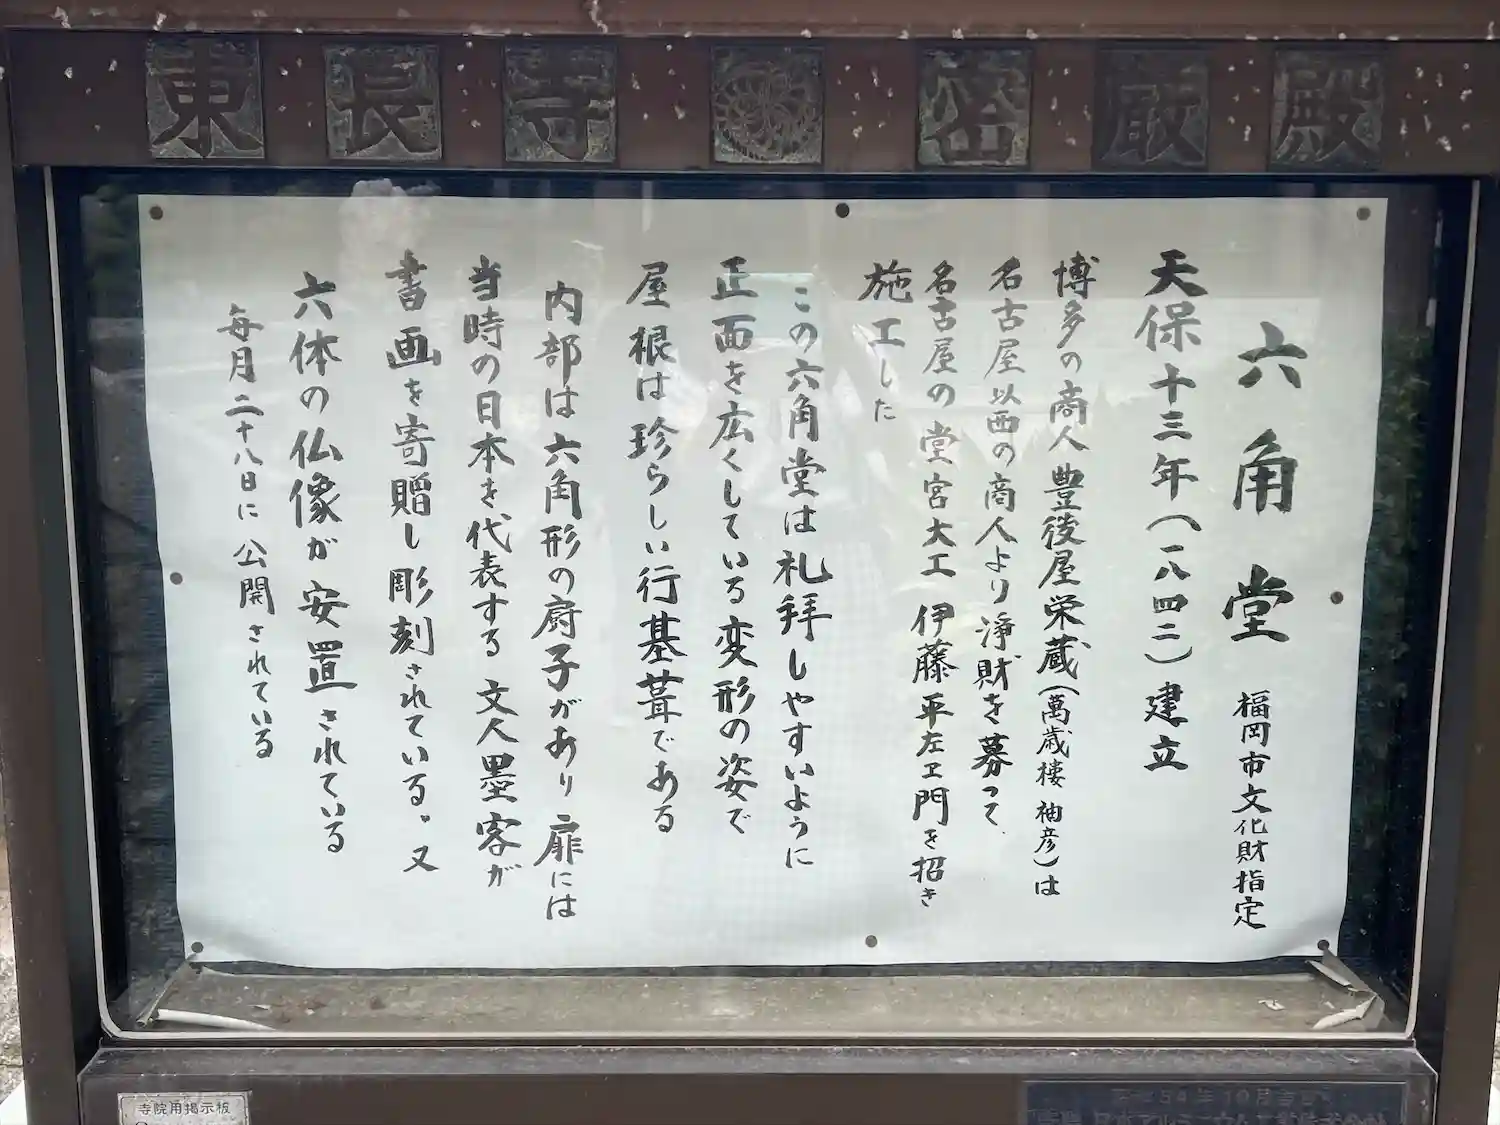 東長寺 密厳殿
六角堂 福岡市文化財指定
天保十三年(一八四二)建立
博多の商人 豊後屋栄蔵(萬歳楼 袖彦)は
名古屋以西の商人より浄財を募って、
名古屋の堂宮大工 伊藤平左ヱ門を招き
施工した
この六角堂は礼拝しやすいように
正面を広くしている変形の姿で
屋根は珍らしい行基葺である
内部は六角形の厨子があり 扉には
当時の日本を代表する 文人墨客が
書画を寄贈し彫刻されている。又
六体の仏像が安置されている
毎月二十八日に 公開されている
寺院用掲示板
54年10月吉日